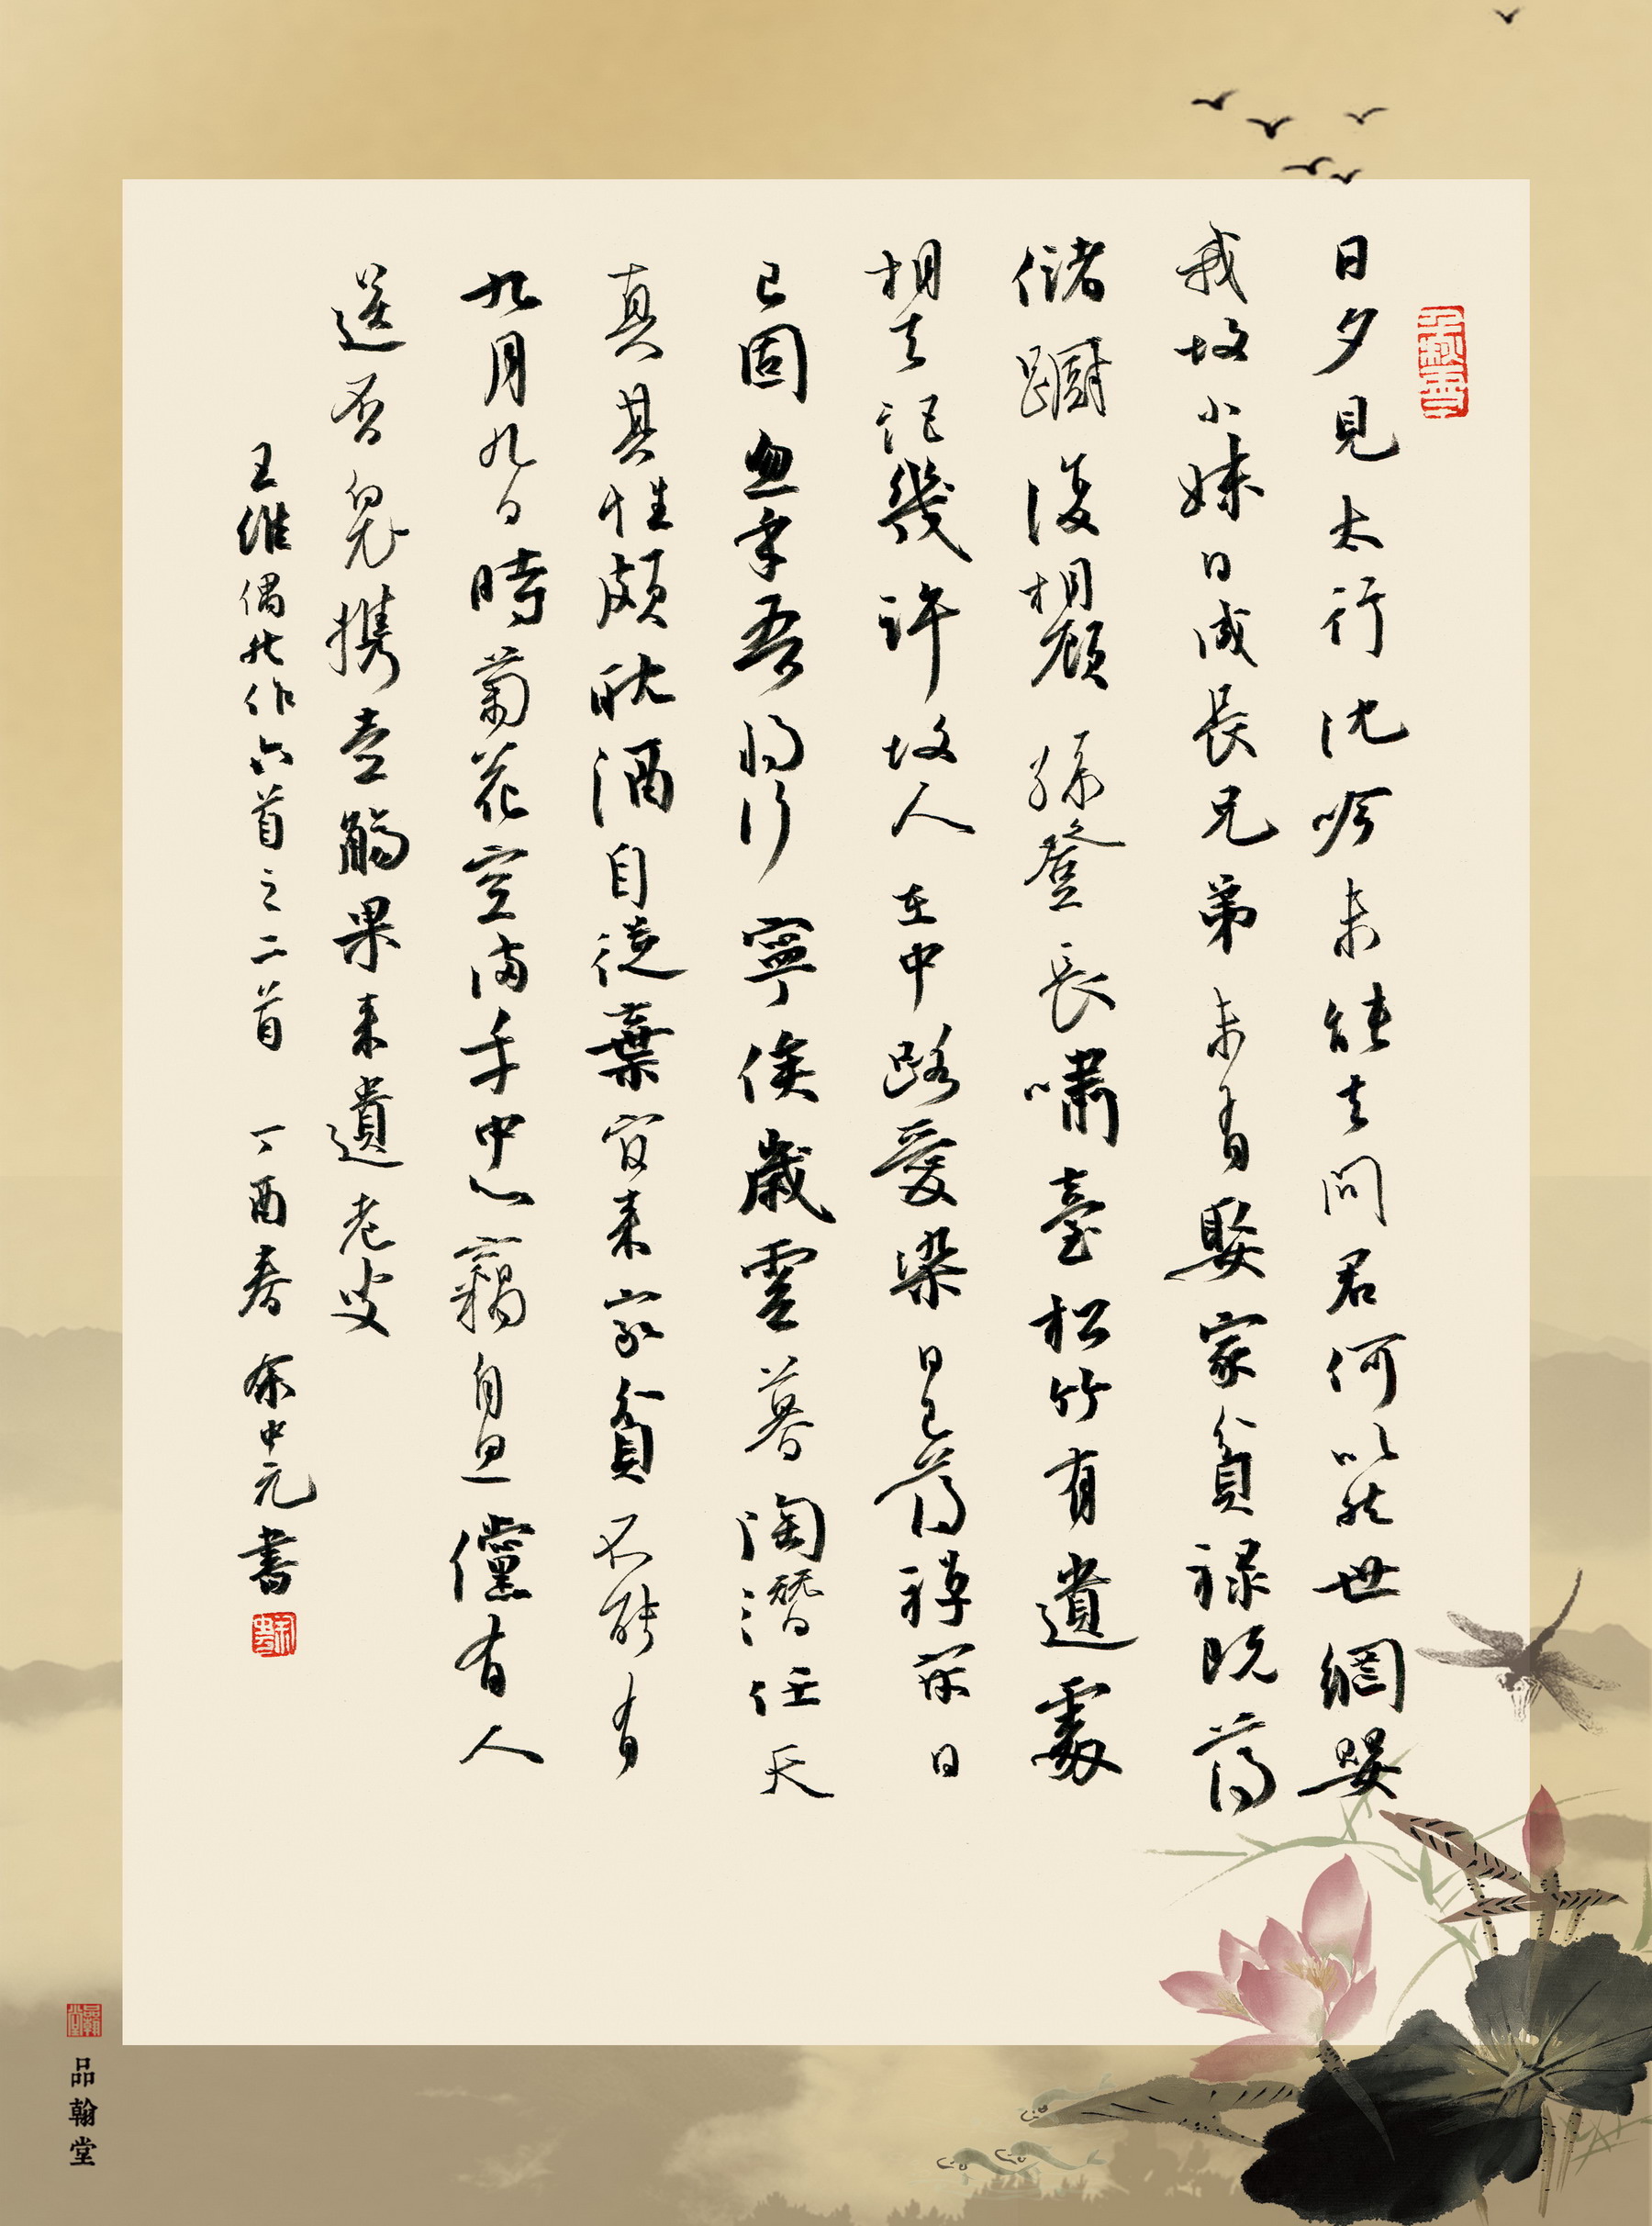 日夕見太行沈吟未能去問君何以然世網嬰
我故小妹日成長兄弟未有娶家貧祿既薄
儲蹰復相顧孫登長嘯臺松竹有遺處
相去詎幾許故人在中路愛染日已薄禪寂日
已固忽乎吾將行寧俟歲雲暮陶潛任天
真其性頗耽酒自從棄官來家貧不能有
九月九日時菊花空滿手中心竊自思儻有人
送否白衣攜壺觴果來遺老叟
王維偶然作六首之二首 丁酉春 余中元書
品翰堂
品翰堂